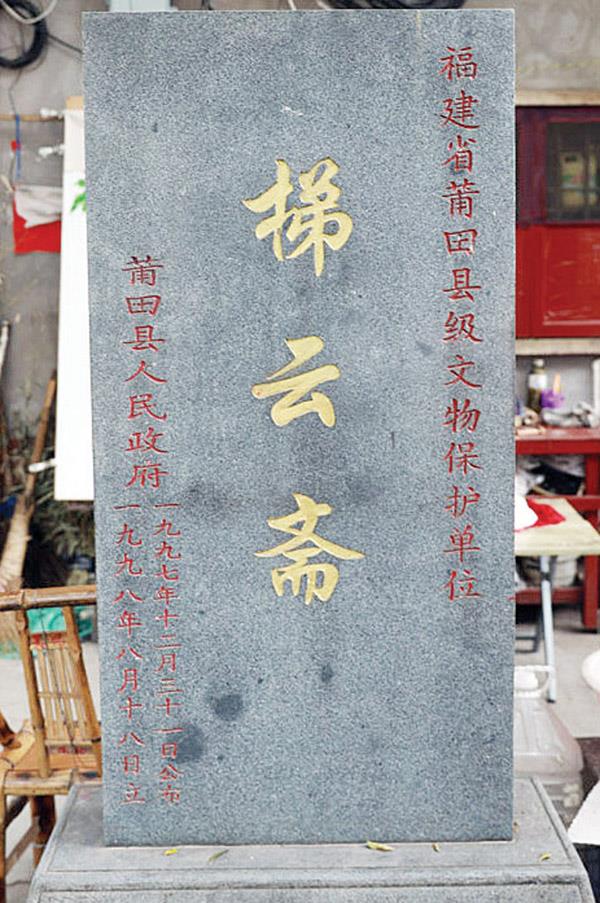 福建省莆田县级文物保护单位
梯云斋
莆田县人民政府
一九九七年十二月三十一日公布
一九九八年八月十八日立